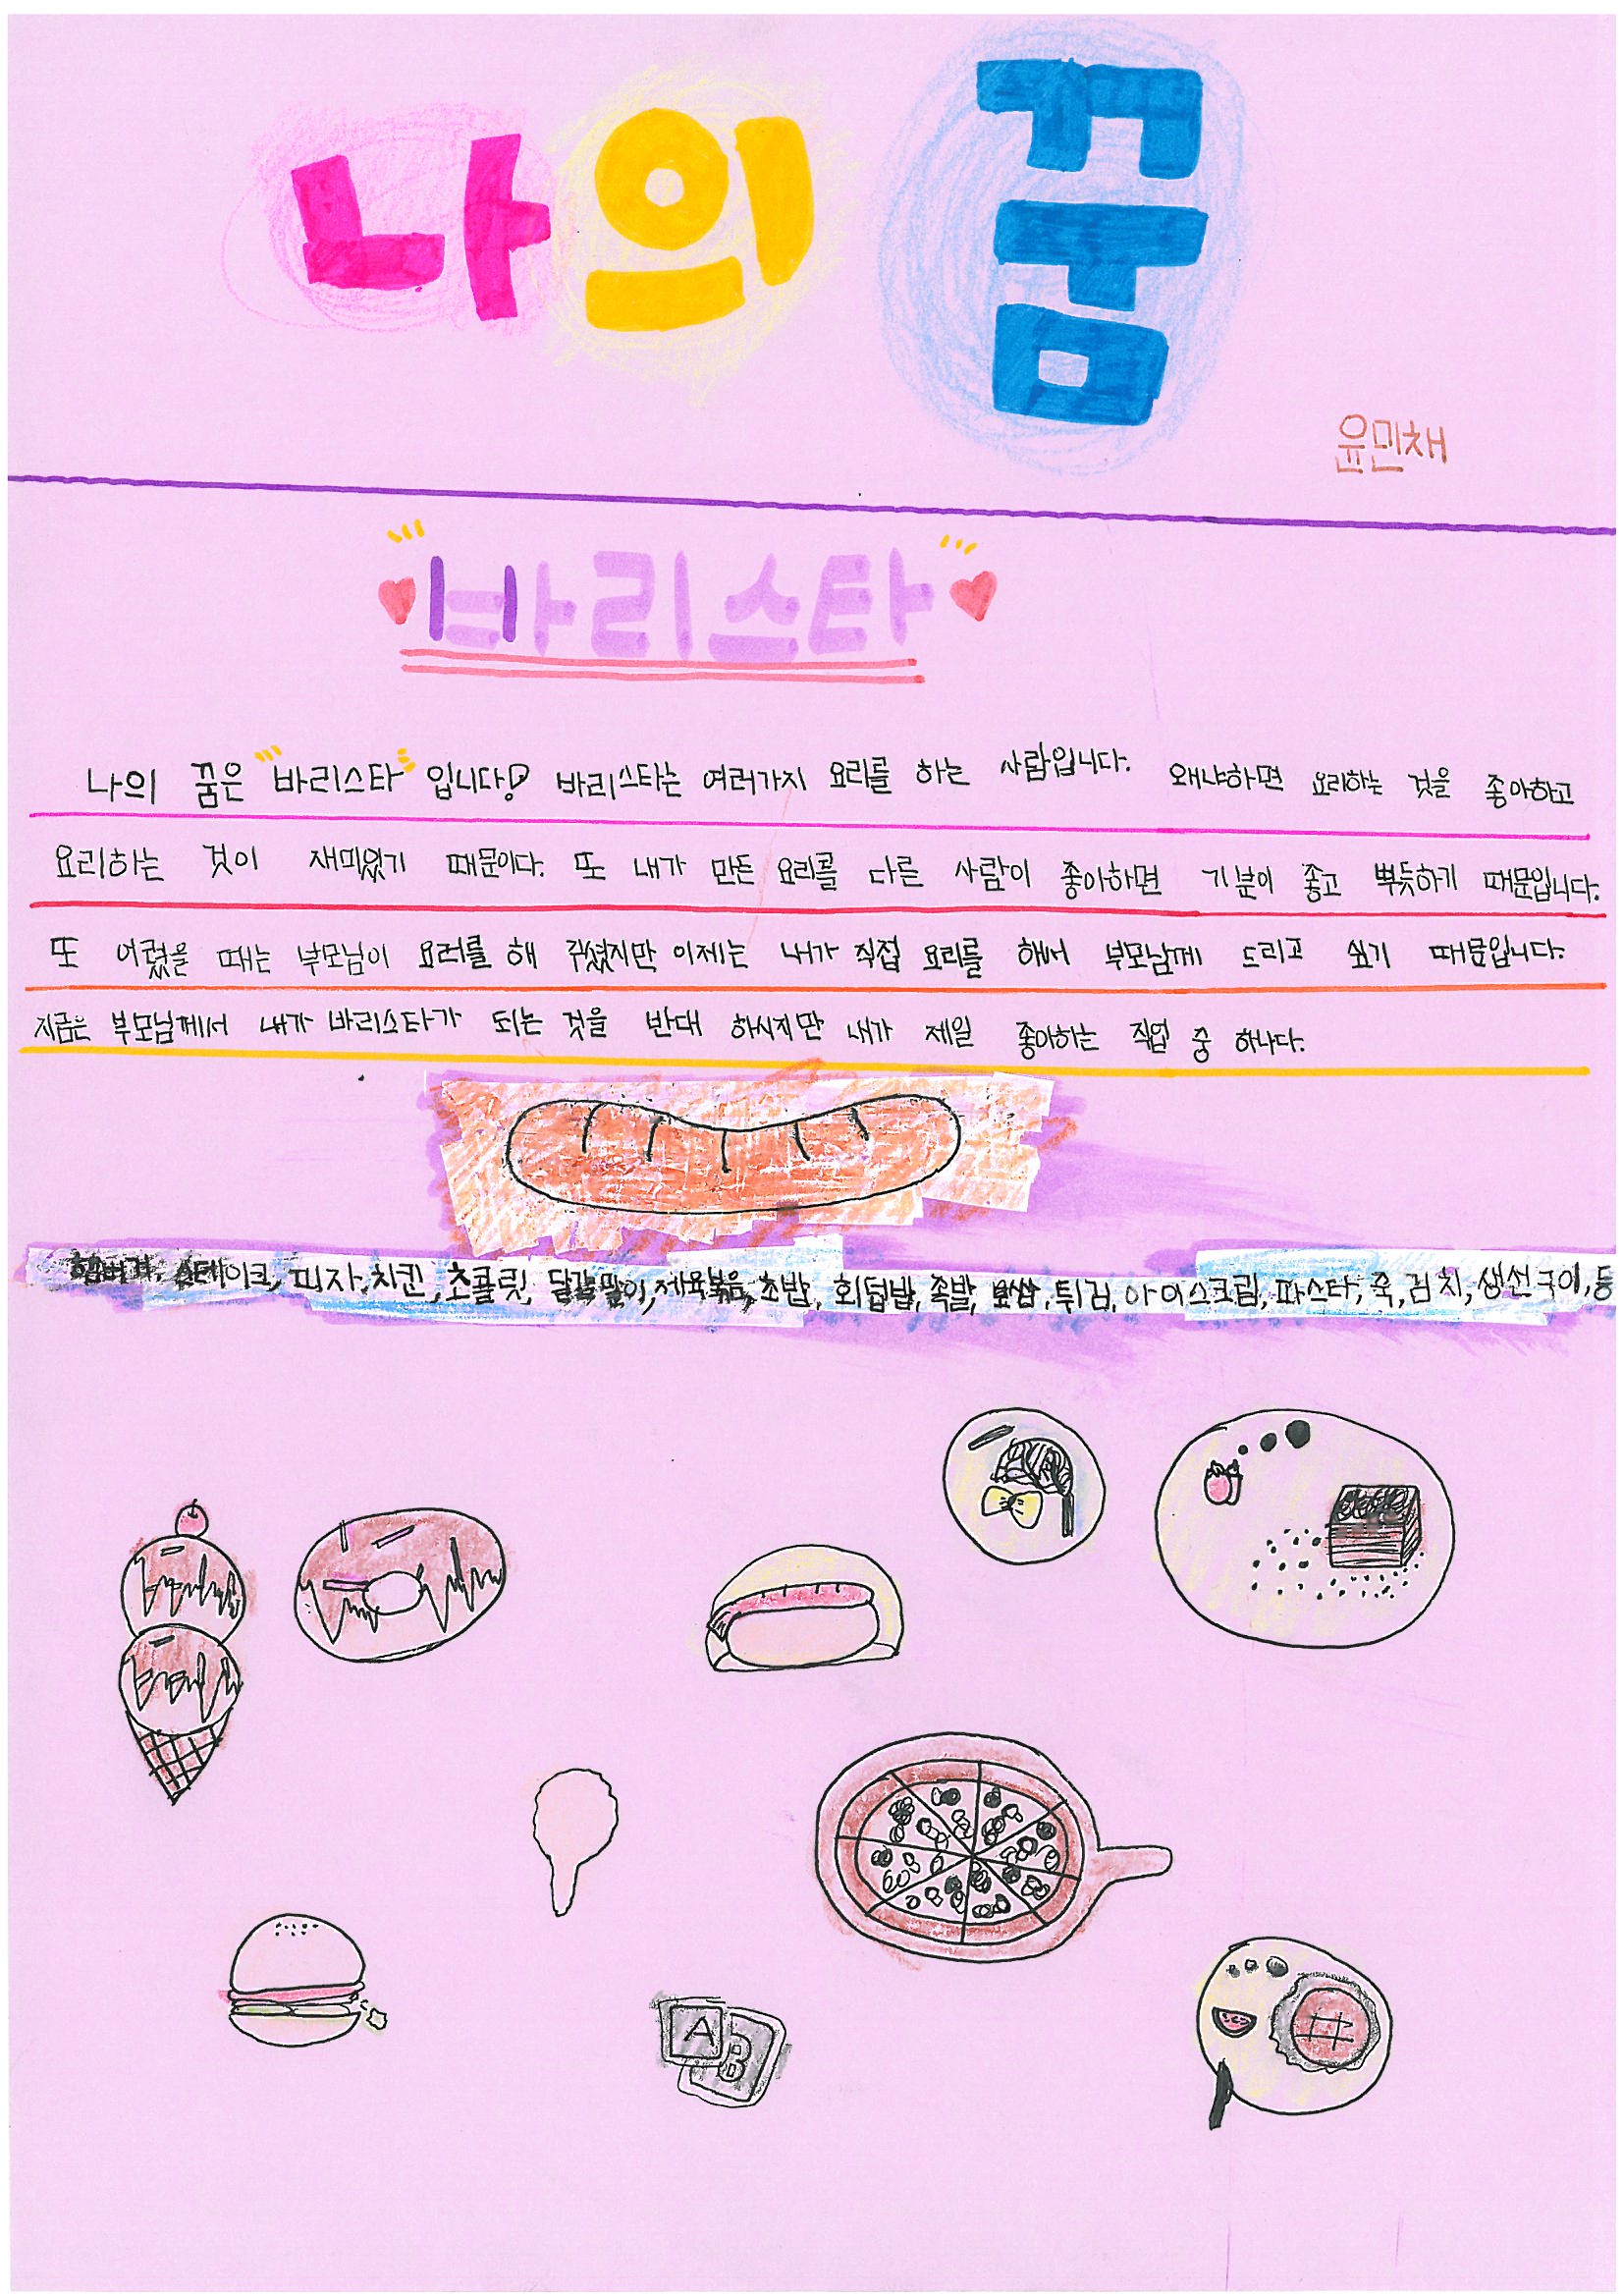 나의 꿈
윤민채
바리스타
나의 꿈은 "바리스타" 입니다! 바리스타는 여러가지 요리를 하는 사람입니다. 왜냐하면 요리하는 것을 좋아하고
요리하는 것이 재미있기 때문이다. 또 내가 만든 요리를 다른 사람이 좋아하면 기분이 좋고 뿌듯하기 때문입니다.
또 어렸을 때는 부모님이 요리를 해 주셨지만 이제는 내가 직접 요리를 해서 부모님께 드리고 싶기 때문입니다.
지금은 부모님께서 내가 바리스타가 되는 것을 반대 하시지만 내가 제일 좋아하는 직업 중 하나다.
햄버거, 스테이크, 피자, 치킨, 초콜릿, 달걀말이, 제육볶음, 초밥, 회덥밥, 족발, 보쌈, 튀김, 아이스크림, 파스타, 죽, 김치, 생선구이, 등
A
B